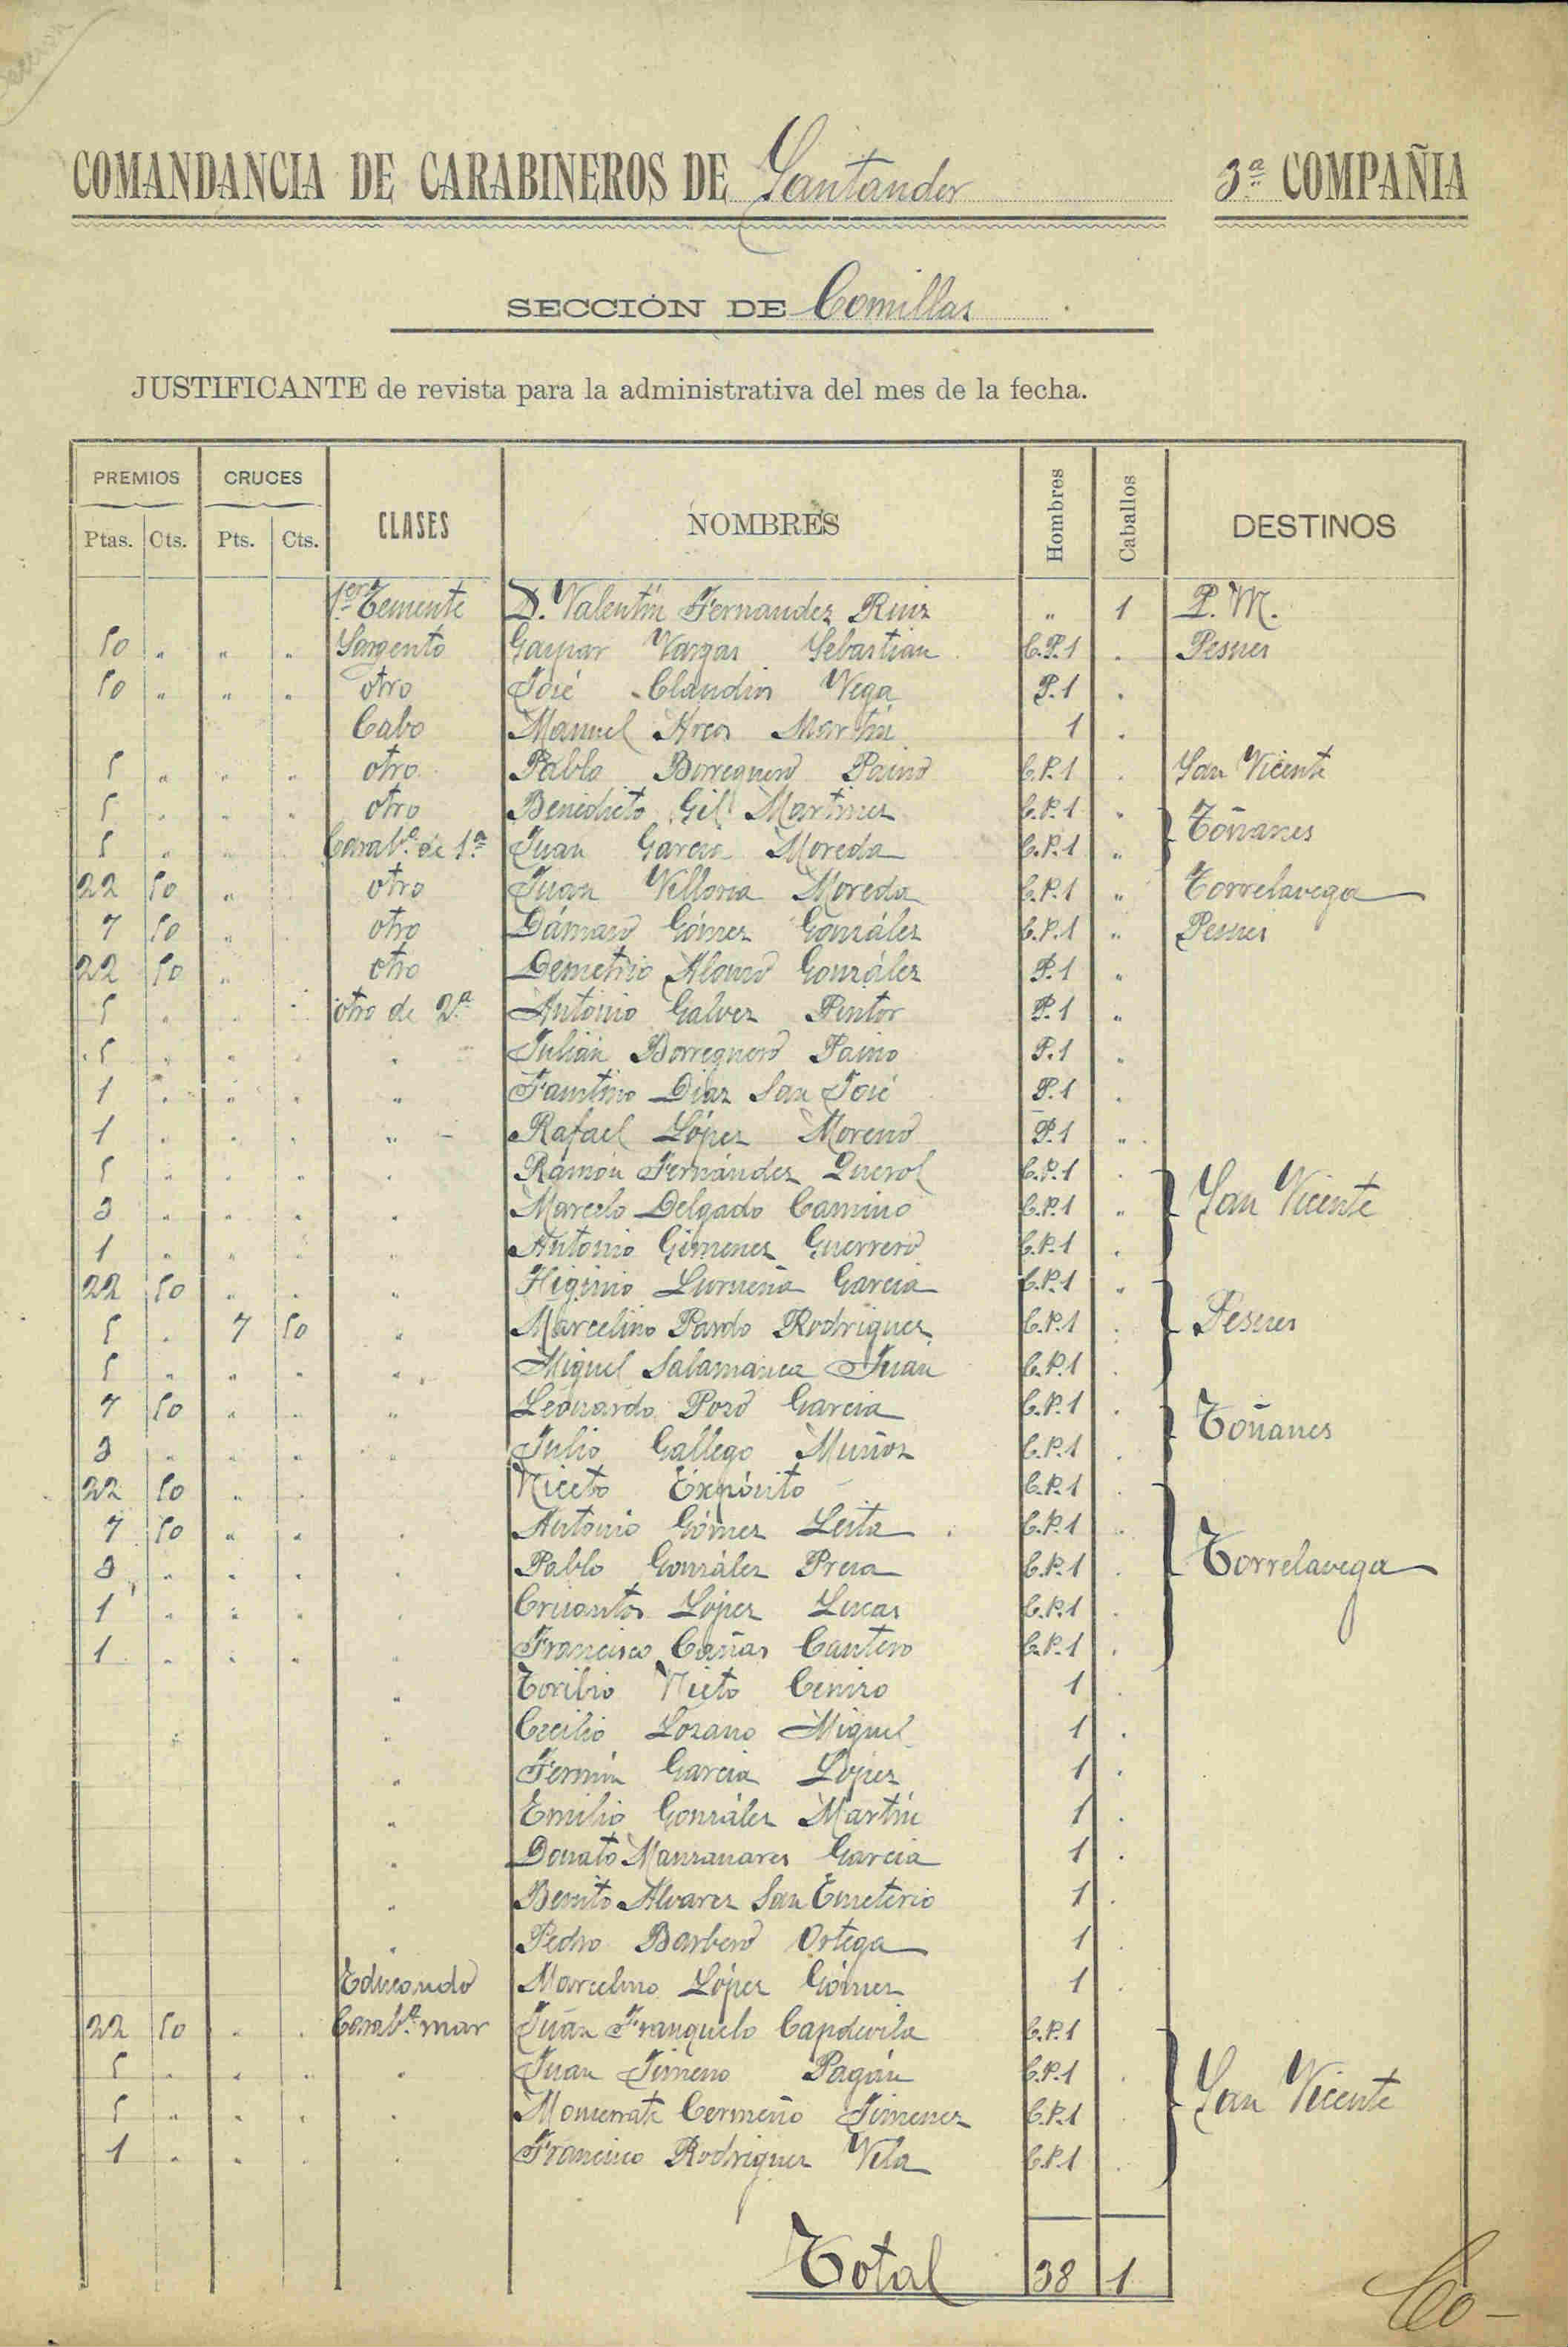 COMANDANCIA DE CARABINEROS DE Santander 3.ª COMPAÑIA
SECCIÓN DE Comillas
JUSTIFICANTE de revista para la administrativa del mes de la fecha.
PREMIOS CRUCES CLASES NOMBRES Hombres Caballos DESTINOS
Ptas. Cts. Pts. Cts.
1.er Teniente D. Valentín Fernandez Ruiz " 1 P. M.
50 " " " Sargento Gaspar Vargas Sebastián C.P.1 . Pesues
50 " " " otro José Claudios Vega P.1 .
Cabo Manuel Arcos Martín 1 .
5 " " " otro Pablo Borreguero Paino C.P.1 . San Vicente
5 " " " otro Benedicto Gil Martinez C.P.1 "
Toñanes
5 " " Carab.º de 1.ª Juan García Moreda C.P.1 "
22 50 " otro Juan Villoria Moreda C.P.1 " Torrelavega
7 50 " otro Dámaso Gómez González C.P.1 " Pesues
22 50 " otro Demetrio Alonso González P.1 "
5 " " " otro de 2.ª Antonio Galvez Pintor P.1 "
5 " " " " Julián Borreguero Paino P.1 "
1 " " " " Faustino Diaz San José P.1 .
1 " " " " Rafael López Moreno P.1 "
5 " " " " Ramón Fernández Querol C.P.1 .
3 " " " " Marcelo Delgado Camino C.P.1 " San Vicente
1 " " " " Antonio Gimenez Guerrero C.P.1 .
22 50 " " " Higinio Lurueña García C.P.1 "
5 " 7 50 " Marcelino Pardo Rodriguez C.P.1 . Pesues
5 " " " " Miguel Salamanca Juan C.P.1 .
7 50 " " " Leonardo Pozo García C.P.1 .
Toñanes
3 " " " " Julio Gallego Muñoz C.P.1 .
22 50 " " Niceto Expósito C.P.1 .
7 50 " " " Antonio Gómez Leita C.P.1 "
3 " " " " Pablo González Presa C.P.1 . Torrelavega
1 " " " " Crisantos López Lucas C.P.1 .
1 " " " " Francisco Cañas Cantero C.P.1 .
" Toribio Nieto Cenizo 1 .
" Cecilio Lozano Miguel 1 .
" Fermín García López 1 .
" Emilio González Martín 1 .
" Donato Manzanares García 1 .
" Benito Alvarez San Emeterio 1 .
" Pedro Barbero Ortega 1 .
Educando Marcelino López Gómez 1 .
22 50 " " Carab.º mar Juan Franquelo Capdevila C.P.1
5 " " " " Juan Jimeno Pagán C.P.1 .
San Vicente
5 " " " " Monserrate Cermeño Jimenez C.P.1 .
1 " " " " Francisco Rodriguez Vila C.P.1 .
Total 38 1
Co-